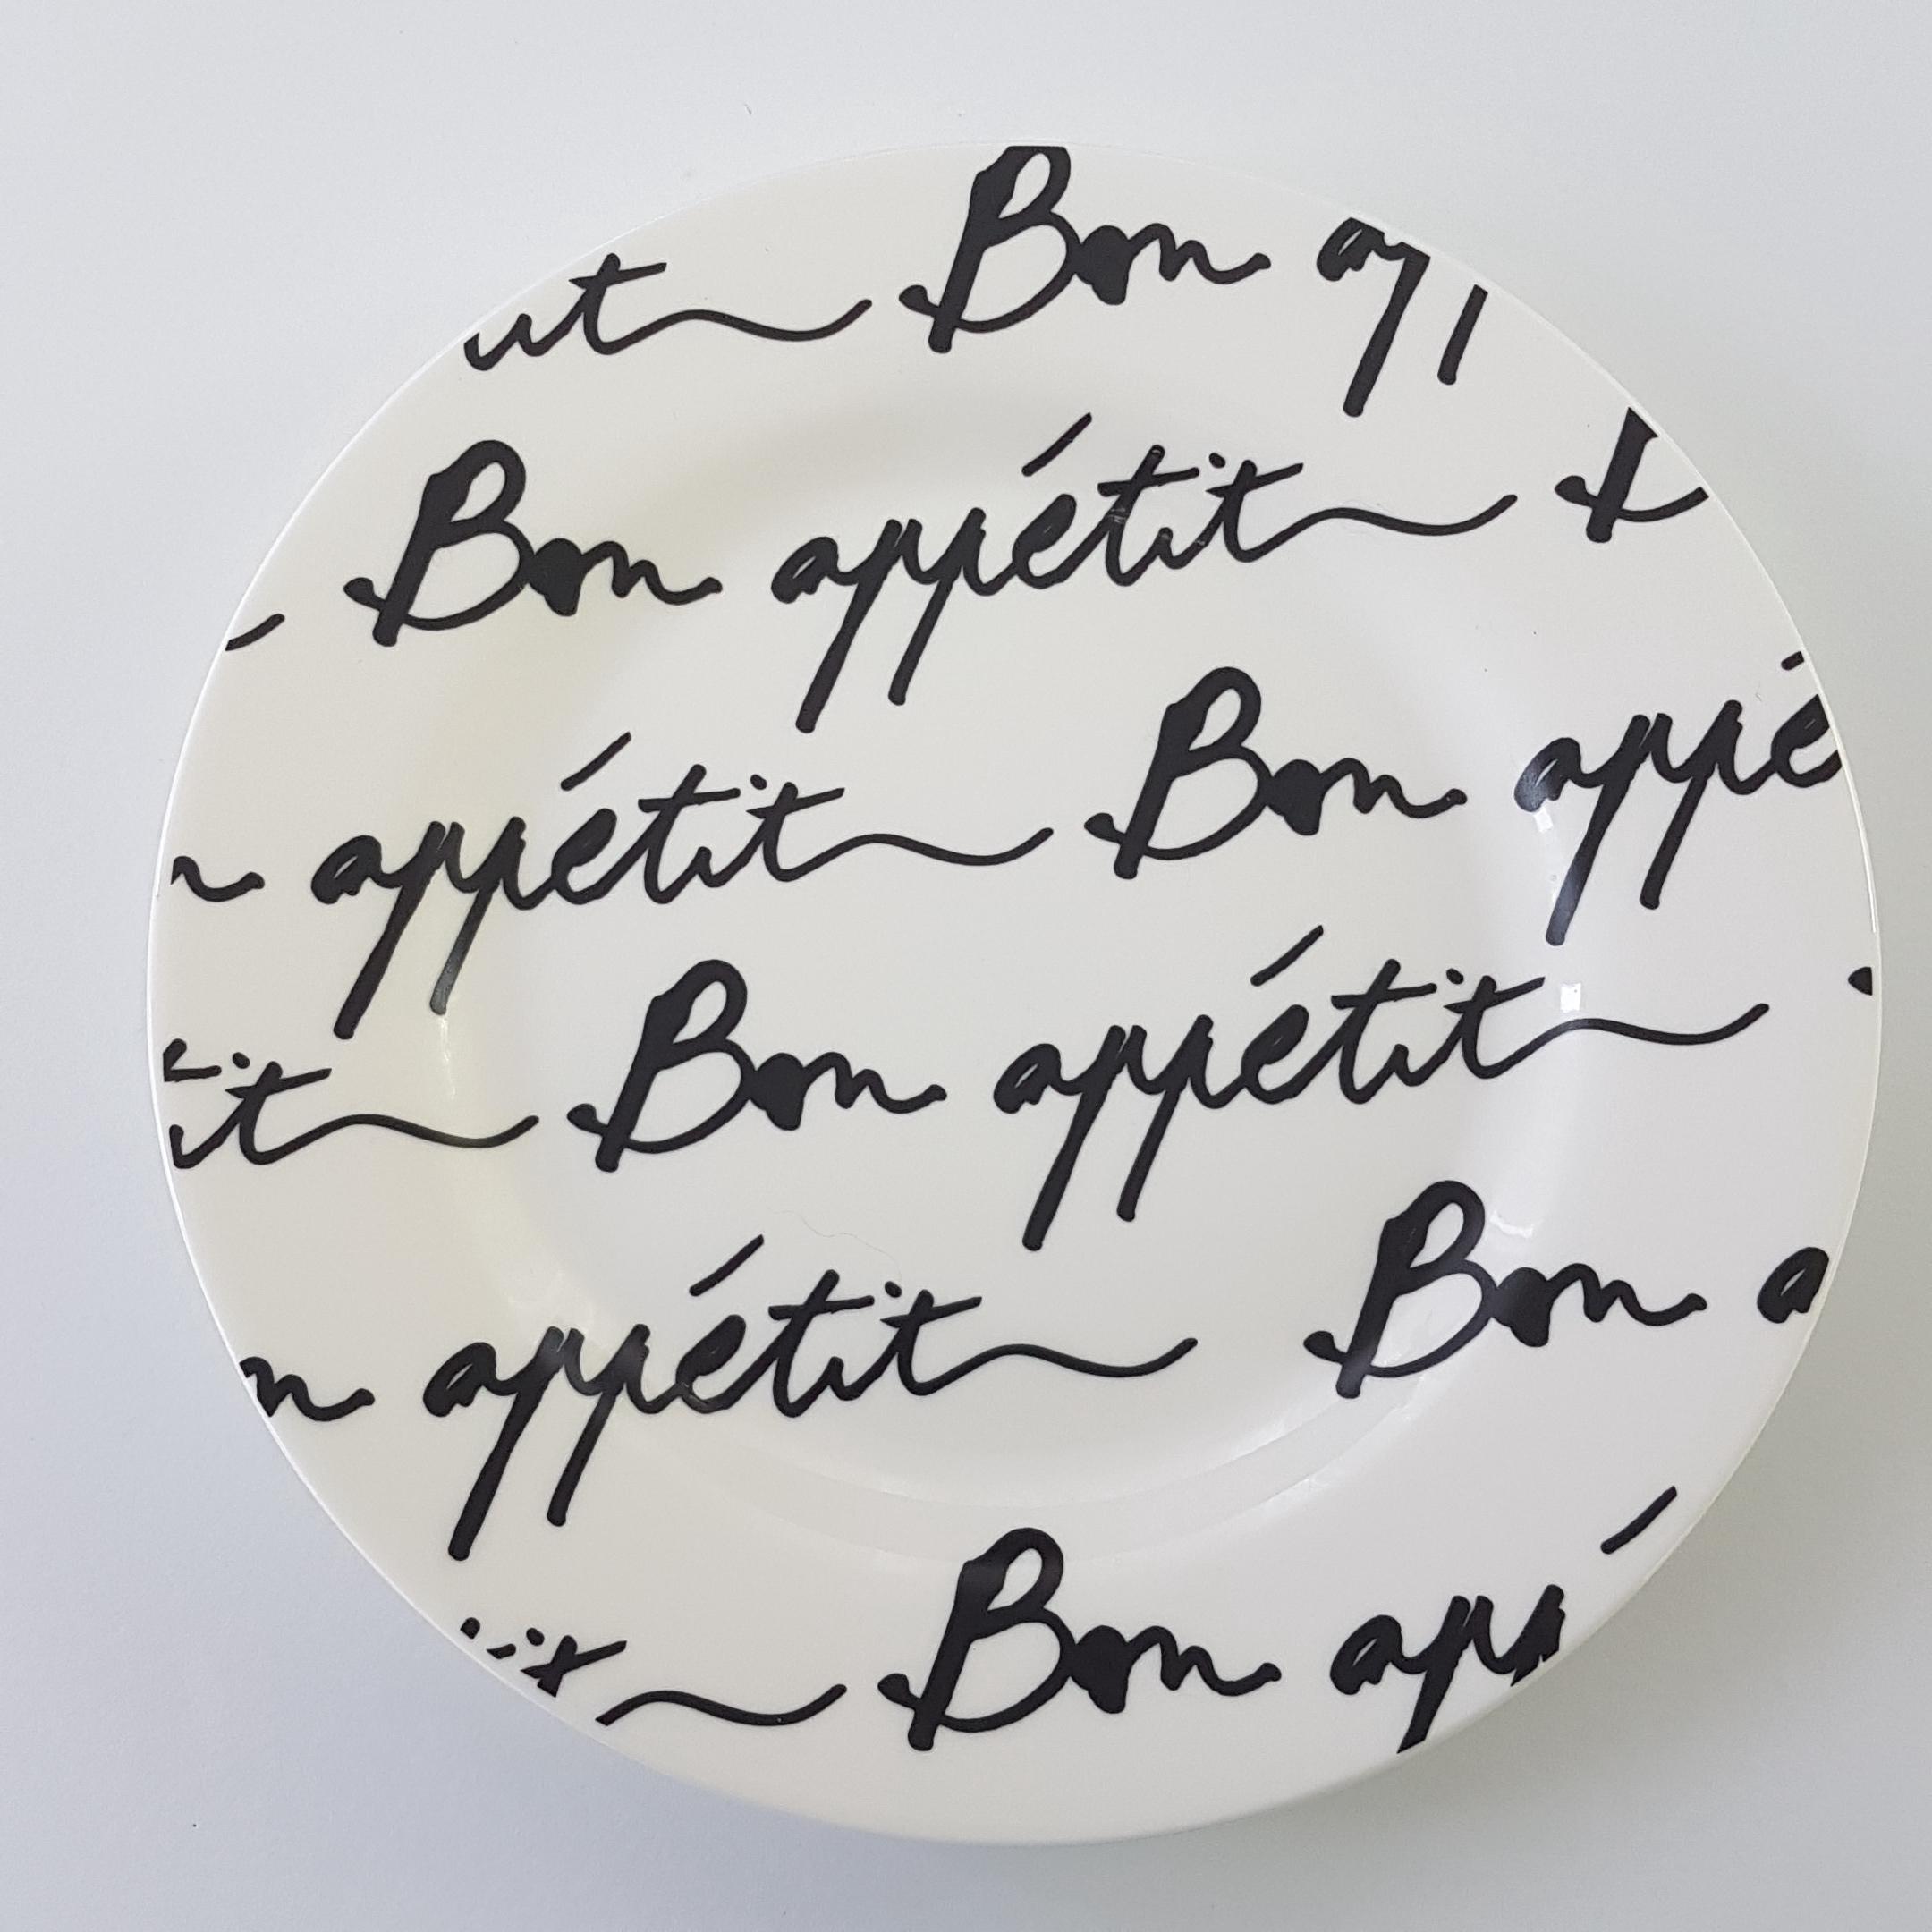 it Bon ap
Bon appétit
n appétit Bon appé
it Bon appétit
n appétit Bon a
it Bon app